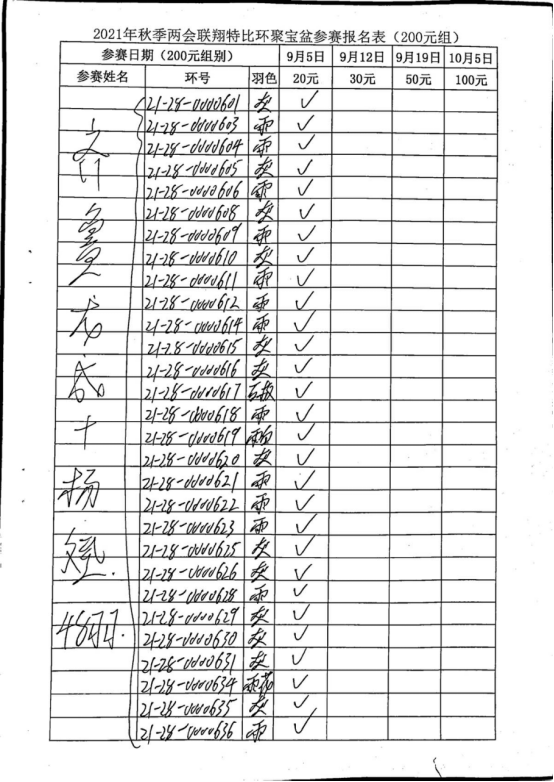 2021年秋季两会联翔特比环聚宝盆参赛报名表（200元组）
参赛日期（200元组别） 9月5日 9月12日 9月19日 10月5日
参赛姓名 环号 羽色 20元 30元 50元 100元
21-28-0000601 灰 ✓
21-28-0000603 雨 ✓
21-28-0000604 雨 ✓
21-28-0000605 灰 ✓
21-28-0000606 雨 ✓
21-28-0000608 灰 ✓
21-28-0000609 雨 ✓
21-28-0000610 灰 ✓
21-28-0000611 雨 ✓
21-28-0000612 雨 ✓
21-28-0000614 雨 ✓
21-28-0000615 灰 ✓
21-28-0000616 灰 ✓
21-28-0000617 ✓
21-28-0000618 雨 ✓
21-28-0000619 雨白 ✓
21-28-0000620 灰 ✓
21-28-0000621 雨 ✓
21-28-0000622 雨 ✓
21-28-0000623 雨 ✓
21-28-0000625 灰 ✓
21-28-0000626 灰 ✓
21-28-0000628 雨 ✓
21-28-0000629 灰 ✓
21-28-0000630 灰 ✓
21-28-0000631 灰 ✓
21-28-0000634 雨花 ✓
21-28-0000635 灰 ✓
21-28-0000636 雨 ✓
十
杨
斌
48羽